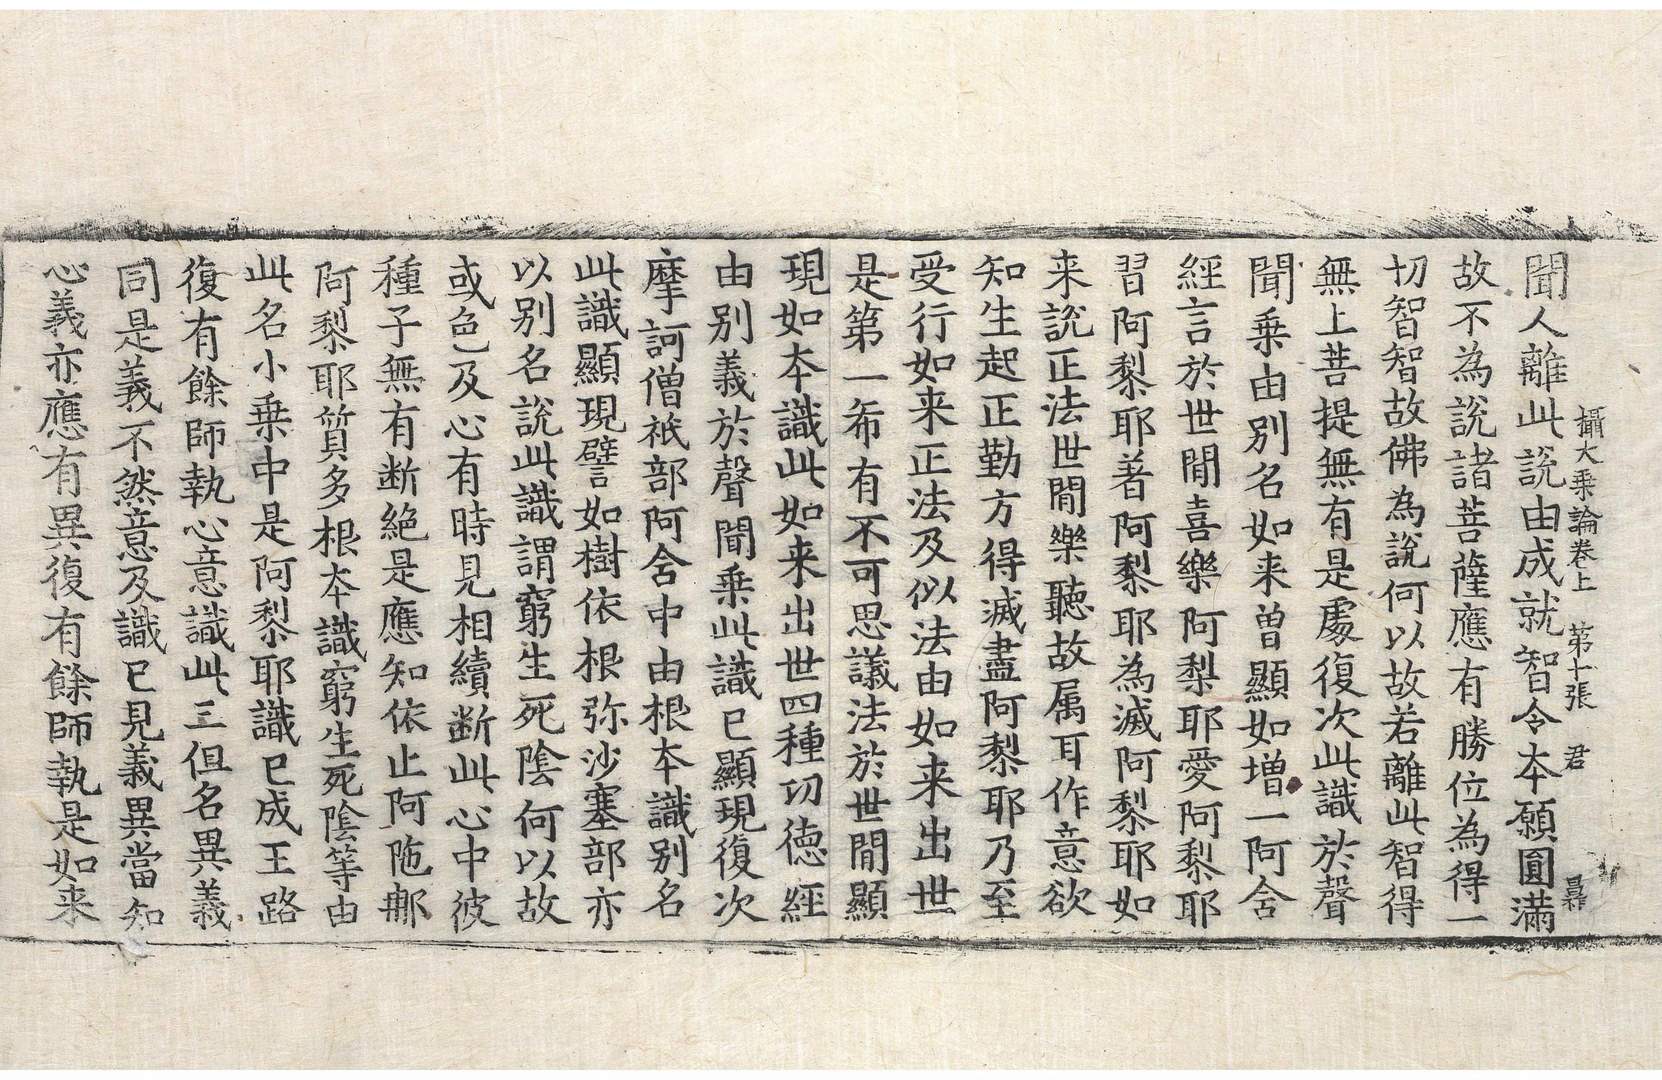 攝大乗論卷上　第十張　君
聞人離此説由成就智令本願圓滿
故不為説諸菩薩應有勝位為得一
切智智故佛為說何以故若離此智得
無上菩提無有是處復次此識於聲
聞乗由別名如来曽顯如増一阿含
經言於世間喜樂阿梨耶愛阿梨耶
習阿梨耶著阿梨耶為滅阿梨耶如
来説正法世間樂聽故属耳作意欲
知生起正勤方得滅盡阿梨耶乃至
受行如来正法及似法由如来出世
是第一希有不可思議法於世間顯
現如本識此如来出世四種功徳經
由別義於聲聞乗此識已顯現復次
摩訶僧祇部阿含中由根本識別名
此識顯現譬如樹依根弥沙塞部亦
以別名説此識謂窮生死陰何以故
或色及心有時見相續断此心中彼
種子無有断絶是應知依止阿陁那
阿梨耶質多根本識窮生死陰等由
此名小乗中是阿梨耶識已成王路
復有餘師執心意識此三但名異義
同是義不然意及識已見義異當知
心義亦應有異復有餘師執是如来